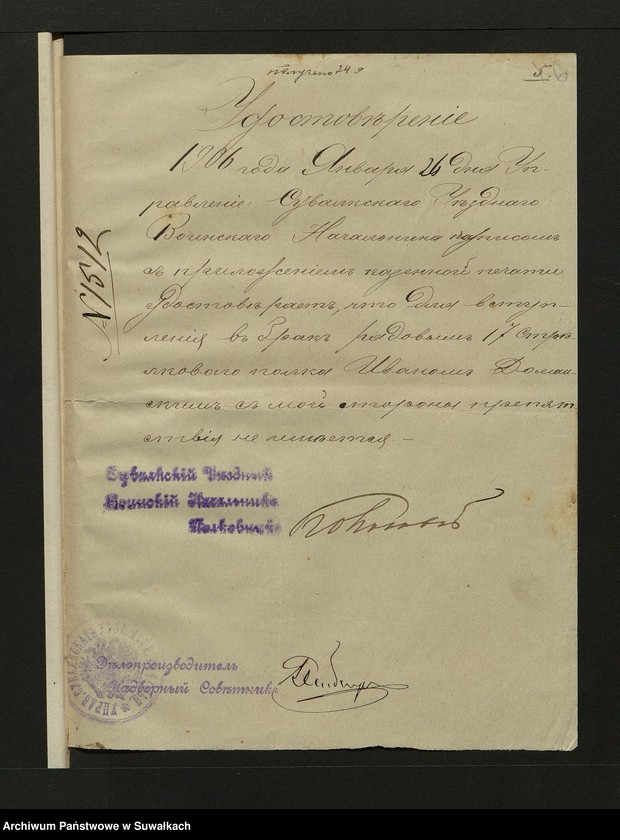 получено 24.9
5.
6
Удостовѣреніе
1906 года Января 26 дня Уп-
равленіе Сувалкскаго Уѣзднаго
Воинскаго Начальника
съ приложеніемъ казенной печати
удостовѣряетъ, что для вступ-
ленія въ бракъ рядовымъ 17 Стрѣ-
лковаго полка Иваномъ Доман-
скимъ съ моей стороны препят
ствія не имѣется –
№ 1512
Сувалкскій Уѣздный
Воинскій Начальникъ
Полковникъ
Дѣлопроизводитель
Надворный Совѣтникъ
Archiwum Państwowe w Suwałkach